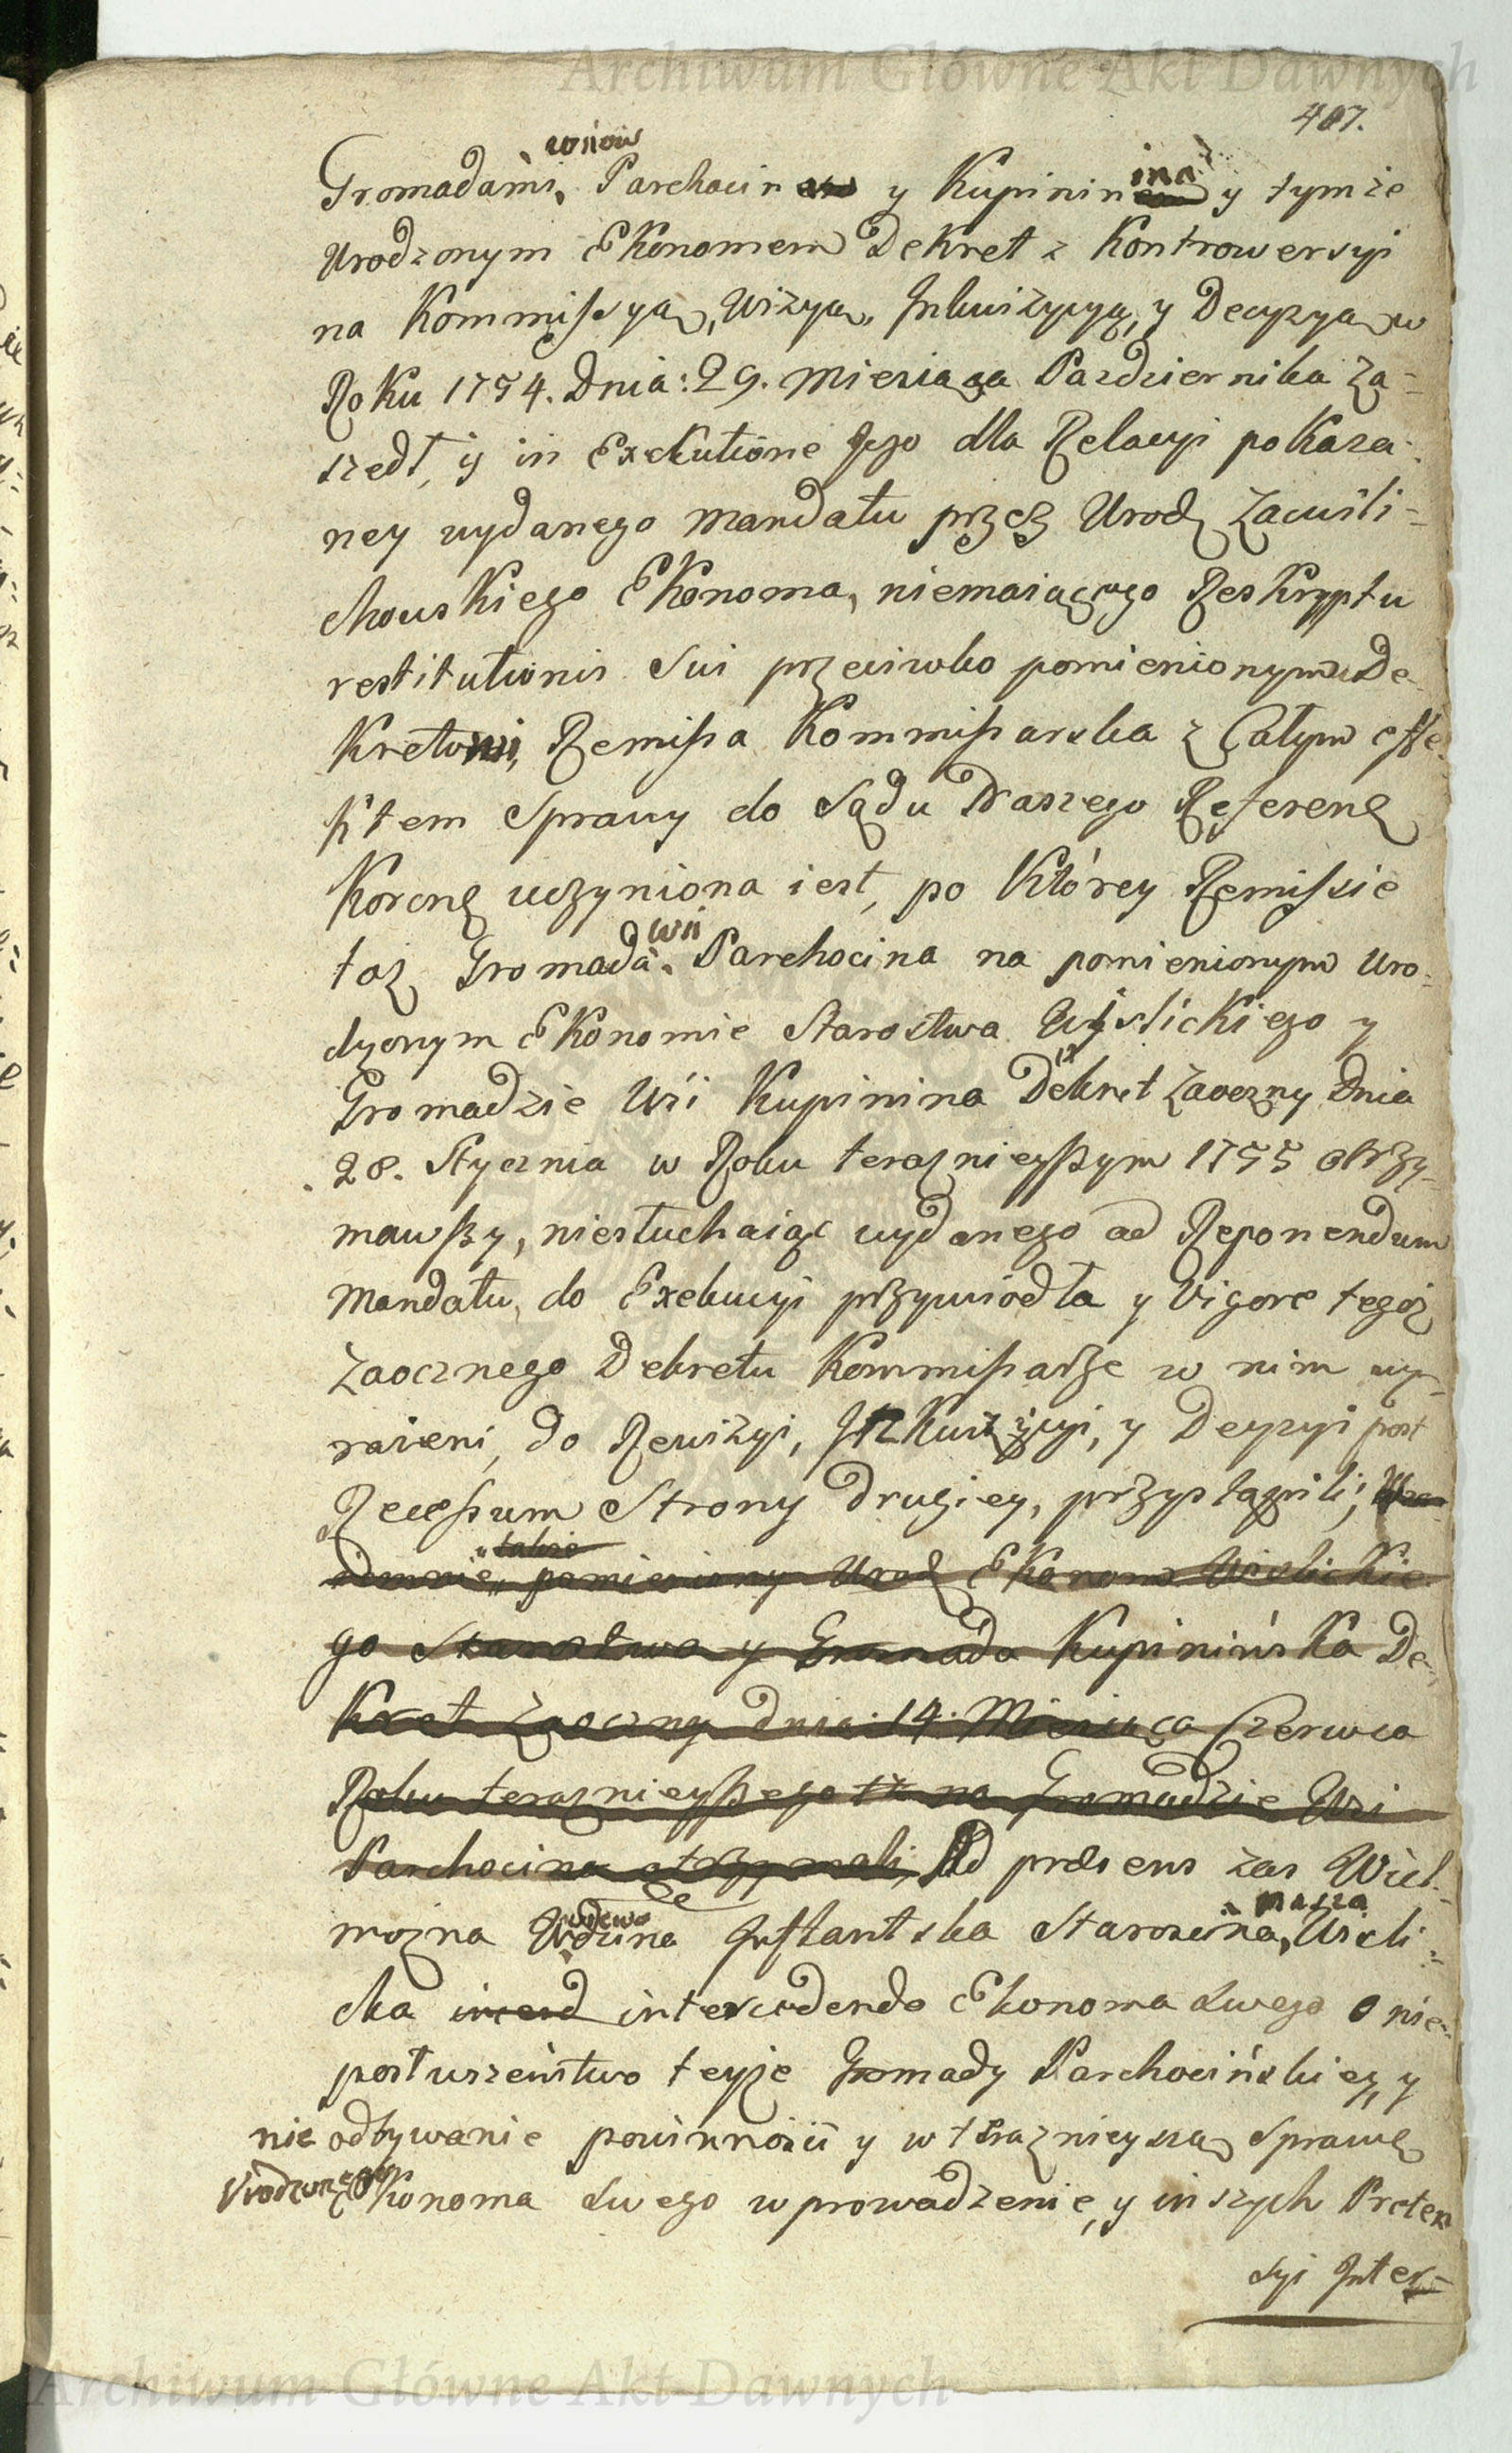 Archiwum Główne Akt Dawnych
407.
wsiów
Gromadami, Parchocin y Kupinin ina y tymże
Urodzonym Ekonomem Dekret z Kontrowersyi
na Kommissyą, Wizyą, Inkwizycyą, y Decyzyą w
Roku 1754. Dnia: 29. Miesiąca Pazdziernika za-
szedł, y in Exekutione Jego dla Relacyi pokaza-
ney wydanego Mandatu przez Urodz
chowskiego Ekonoma, niemaiącego Reskryptu
restitutionis Sui przeciwko pomienionymu De-
kretowi, Remissa Kommissarska z Całym effe-
ktem Sprawy do Sądu Naszego Referend
Koronn uczyniona iest, po Którey Remissie
wsi
taż Gromada Parchocina na pomienionym Uro-
dzonym Ekonomie Starostwa Wislickiego y
Gromadzie Wsi Kupinina Dekret zaoczny Dnia
28. Stycznia w Roku teraznieyszym 1755 otrzy-
mawszy, niesłuchaiąc wydanego ad Reponendum
Mandatu, do Exekucyi przywiodła y Vigore tegoż
Zaocznego Dekretu Kommissarze w nim wy-
rażeni, do Rewizyi, Inkwizycyi, y Decyzyi post
Recessum Strony drugiey, przystąpili;
także
pomieniony Urodz Ekonom Wislickie-
go Starostwa y Gromada Kupinińska De-
kret Zaoczny dnia: 14. Miesiąca Czerwca
Roku teraznieyszego na Gromadzie Wsi
Parchocina otrzymali, Ad præsens zas Wiel-
wdowa nasza
można Instantka Starościna, Wisli-
cka intercedendo Ekonoma swego o nie-
posłuszeństwo teyże Gromady Parchocińskiey, y
nie odbywanie powinności y w teraznieyszą Sprawę
Ekonoma swego wprowadzenie, y inszych Preten
syi Inter-
Archiwum Główne Akt Dawnych